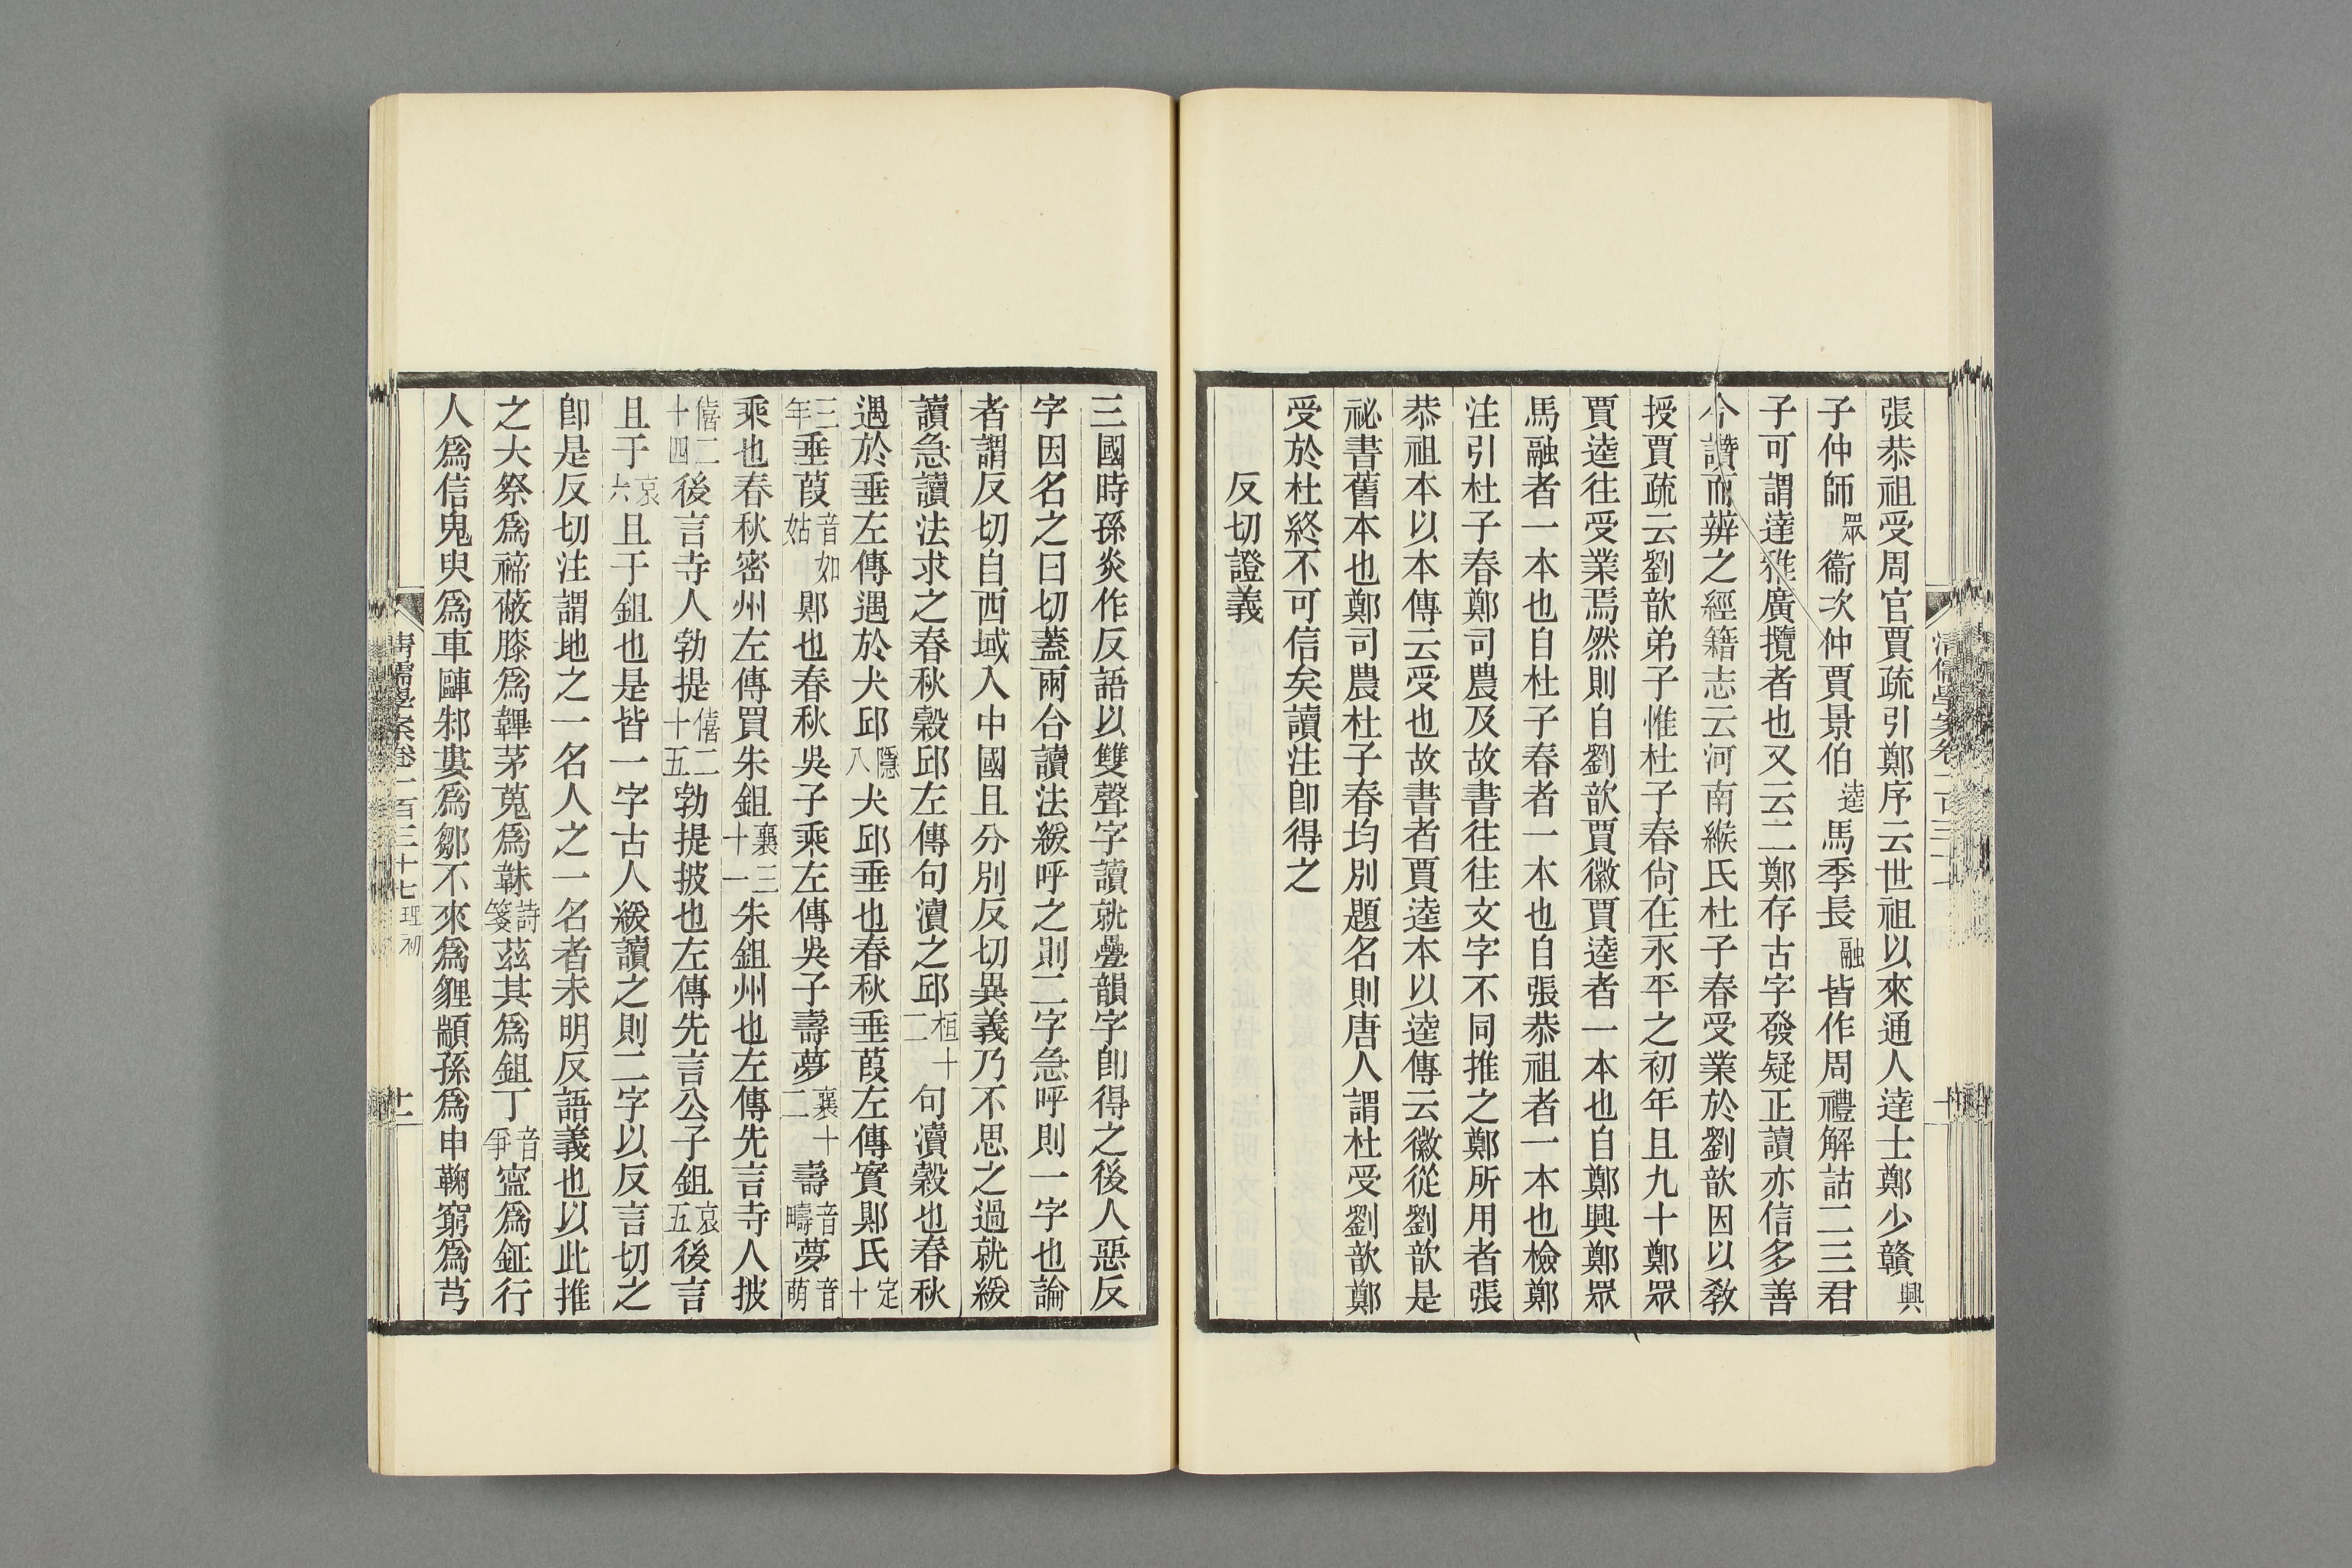 張恭祖受周官賈疏引鄭序云世祖以來通人達士鄭少贛興
子仲師眾衞次仲賈景伯逵馬季長融皆作周禮解詁二三君
子可謂達雅廣攬者也又云二鄭存古字發疑正讀亦信多善
今讚而辨之經籍志云河南緱氏杜子春受業於劉歆因以敎
授賈疏云劉歆弟子惟杜子春尙在永平之初年且九十鄭眾
賈逵往受業焉然則自劉歆賈徽賈逵者一本也自鄭興鄭眾
馬融者一本也自杜子春者一本也自張恭祖者一本也檢鄭
注引杜子春鄭司農及故書往往文字不同推之鄭所用者張
恭祖本以本傳云受也故書者賈逵本以逵傳云徽從劉歆是
祕書舊本也鄭司農杜子春均別題名則唐人謂杜受劉歆鄭
受於杜終不可信矣讀注卽得之
反切證義
三國時孫炎作反語以雙聲字讀就疊韻字卽得之後人惡反
字因名之曰切蓋兩合讀法緩呼之則二字急呼則一字也論
者謂反切自西域入中國且分別反切異義乃不思之過就緩
讀急讀法求之春秋穀邱左傳句瀆之邱桓十二句瀆穀也春秋
遇於垂左傳遇於犬邱隱八犬邱垂也春秋垂葭左傳實郹氏定十
三年垂葭音如姑郹也春秋吳子乘左傳吳子壽夢襄十二壽音疇夢音萌
乘也春秋密州左傳買朱鉏襄三十一朱鉏州也左傳先言寺人披
僖二十四後言寺人勃提僖二十五勃提披也左傳先言公子鉏哀五後言
且于哀六且于鉏也是皆一字古人緩讀之則二字以反言切之
卽是反切注謂地之一名人之一名者未明反語義也以此推
之大祭爲禘蔽膝爲韠茅蒐爲韎詩箋茲其爲鉏丁音爭寍爲鉦行
人爲信鬼臾爲車䡟邾婁爲鄒不來爲貍顓孫爲申鞠窮爲芎
清儒學案卷一百三十七 理初